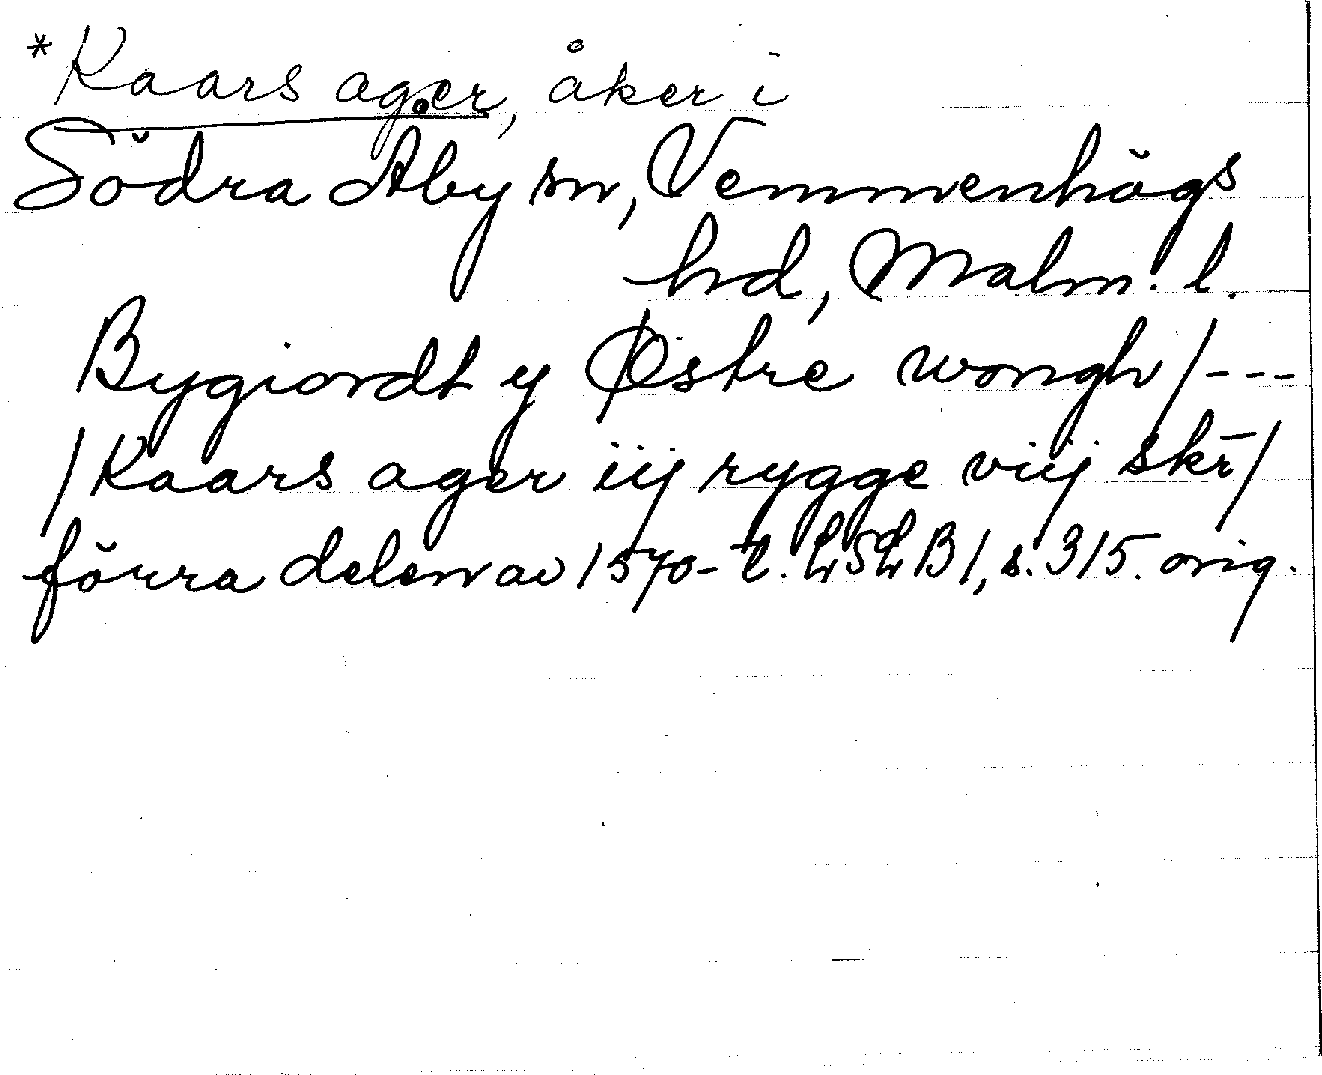 *Kaars ager, åker i
Södra Åby sn, Vemmenhögs
hd, Malm. l.
Bygiordt y Østre wongh /---
/ Kaars ager iij rygge viij skr̄/
förra delen av 1570-t. LSLB1, s. 315. orig.